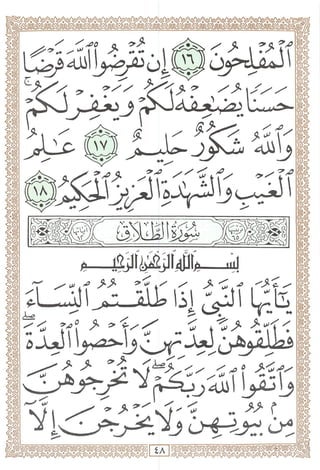 ٱلْمُفْلِحُونَ ١٦ إِن تُقْرِضُوا۟ ٱللَّهَ قَرْضًا
حَسَنًا يُضَٰعِفْهُ لَكُمْ وَيَغْفِرْ لَكُمْ ۚ
وَٱللَّهُ شَكُورٌ حَلِيمٌ ١٧ عَٰلِمُ
ٱلْغَيْبِ وَٱلشَّهَٰدَةِ ٱلْعَزِيزُ ٱلْحَكِيمُ ١٨
سُورَةُ الطَّلَاقِ
بِسْمِ ٱللَّهِ ٱلرَّحْمَٰنِ ٱلرَّحِيمِ
يَٰٓأَيُّهَا ٱلنَّبِىُّ إِذَا طَلَّقْتُمُ ٱلنِّسَآءَ
فَطَلِّقُوهُنَّ لِعِدَّتِهِنَّ وَأَحْصُوا۟ ٱلْعِدَّةَ ۖ
وَٱتَّقُوا۟ ٱللَّهَ رَبَّكُمْ ۖ لَا تُخْرِجُوهُنَّ
مِنۢ بُيُوتِهِنَّ وَلَا يَخْرُجْنَ إِلَّآ
٤٨